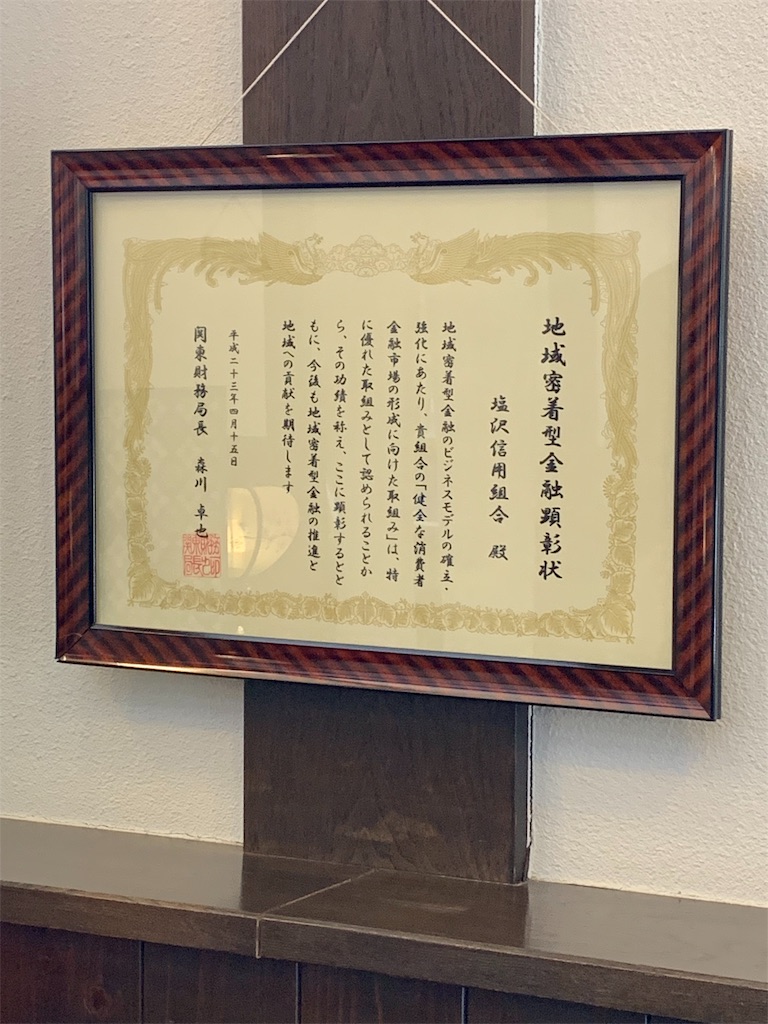 地域密着型金融顕彰状
塩沢信用組合 殿
地域密着型金融のビジネスモデルの確立・
強化にあたり、貴組合の「健全な消費者
金融市場の形成に向けた取組み」は、特
に優れた取組みとして認められることか
ら、その功績を称え、ここに顕彰するとと
もに、今後も地域密着型金融の推進と
地域への貢献を期待します
平成二十三年四月十五日
関東財務局長 森川 卓也